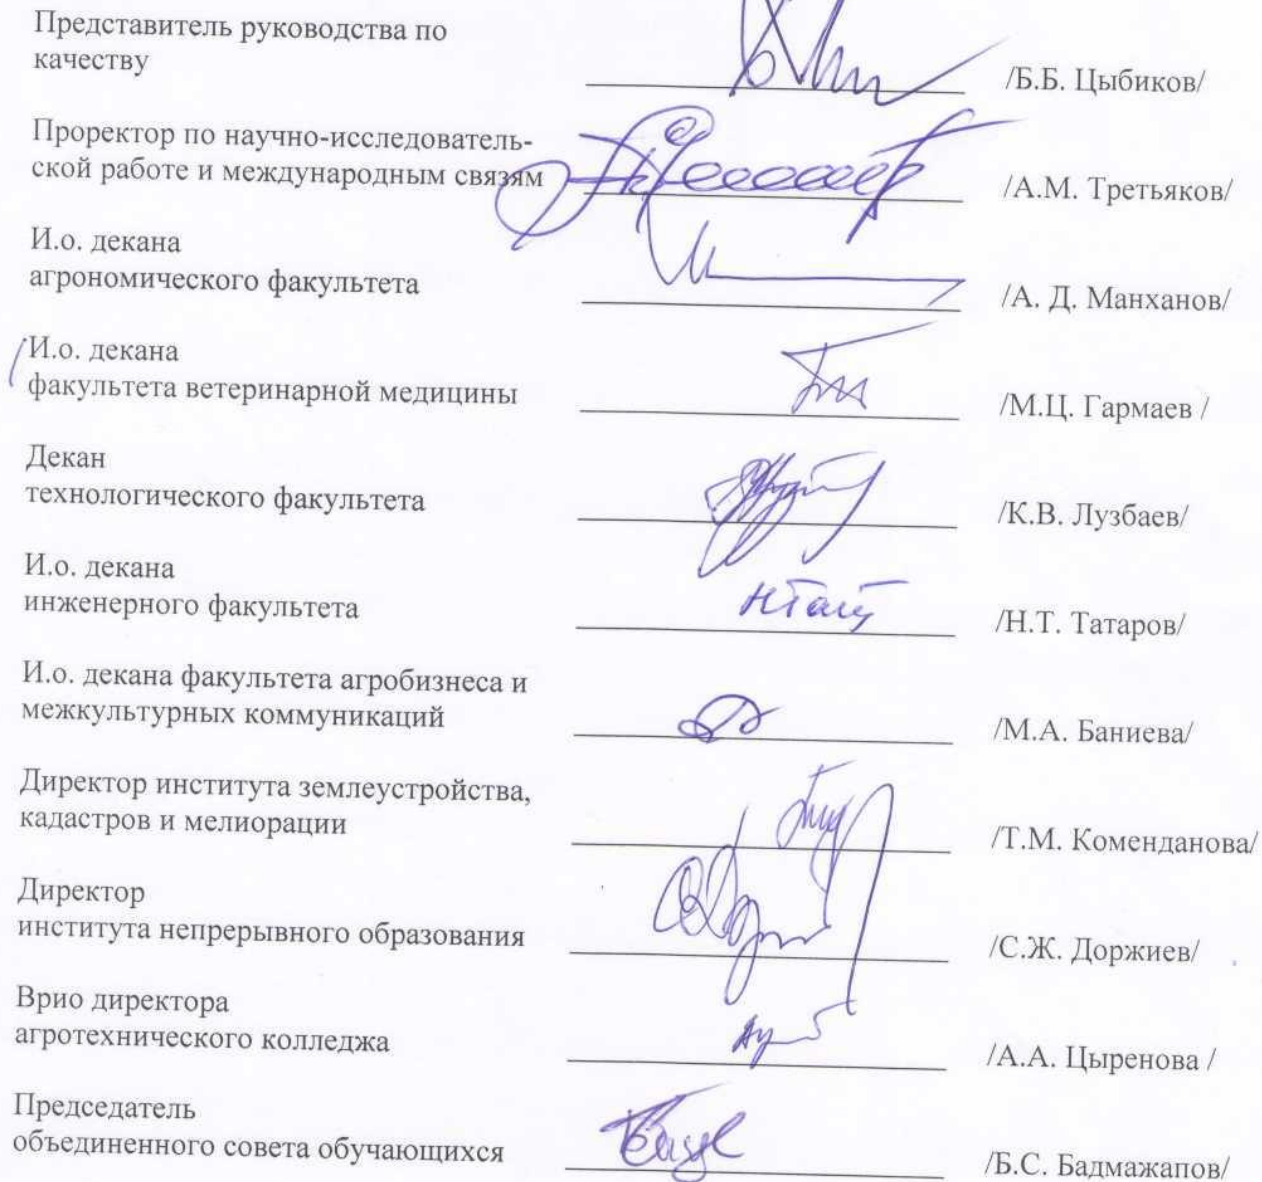 Представитель руководства по
качеству /Б.Б. Цыбиков/
Проректор по научно-исследователь-
ской работе и международным связям /А.М. Третьяков/
И.о. декана
агрономического факультета /А. Д. Манханов/
И.о. декана
факультета ветеринарной медицины /М.Ц. Гармаев /
Декан
технологического факультета /К.В. Лузбаев/
И.о. декана
инженерного факультета /Н.Т. Татаров/
И.о. декана факультета агробизнеса и
межкультурных коммуникаций /М.А. Баниева/
Директор института землеустройства,
кадастров и мелиорации /Т.М. Коменданова/
Директор
института непрерывного образования /С.Ж. Доржиев/
Врио директора
агротехнического колледжа /А.А. Цыренова /
Председатель
объединенного совета обучающихся /Б.С. Бадмажапов/